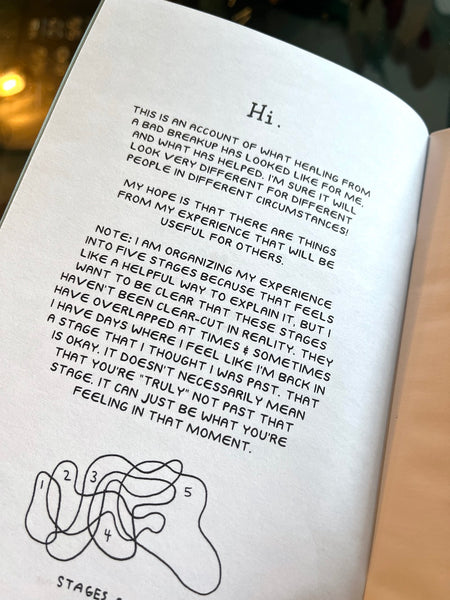 Hi.
THIS IS AN ACCOUNT OF WHAT HEALING FROM
A BAD BREAKUP HAS LOOKED LIKE FOR ME.
AND WHAT HAS HELPED. I'M SURE IT WILL
LOOK VERY DIFFERENT FOR DIFFERENT
PEOPLE IN DIFFERENT CIRCUMSTANCES!
MY HOPE IS THAT THERE ARE THINGS
FROM MY EXPERIENCE THAT WILL BE
USEFUL FOR OTHERS.
NOTE: I AM ORGANIZING MY EXPERIENCE
INTO FIVE STAGES BECAUSE THAT FEELS
LIKE A HELPFUL WAY TO EXPLAIN IT. BUT I
WANT TO BE CLEAR THAT THESE STAGES
HAVEN'T BEEN CLEAR-CUT IN REALITY. THEY
HAVE OVERLAPPED AT TIMES & SOMETIMES
I HAVE DAYS WHERE I FEEL LIKE I'M BACK IN
A STAGE THAT I THOUGHT I WAS PAST. THAT
IS OKAY. IT DOESN'T NECESSARILY MEAN
THAT YOU'RE "TRULY" NOT PAST THAT
STAGE. IT CAN JUST BE WHAT YOU'RE
FEELING IN THAT MOMENT.
1 2 3 4 5
STAGES